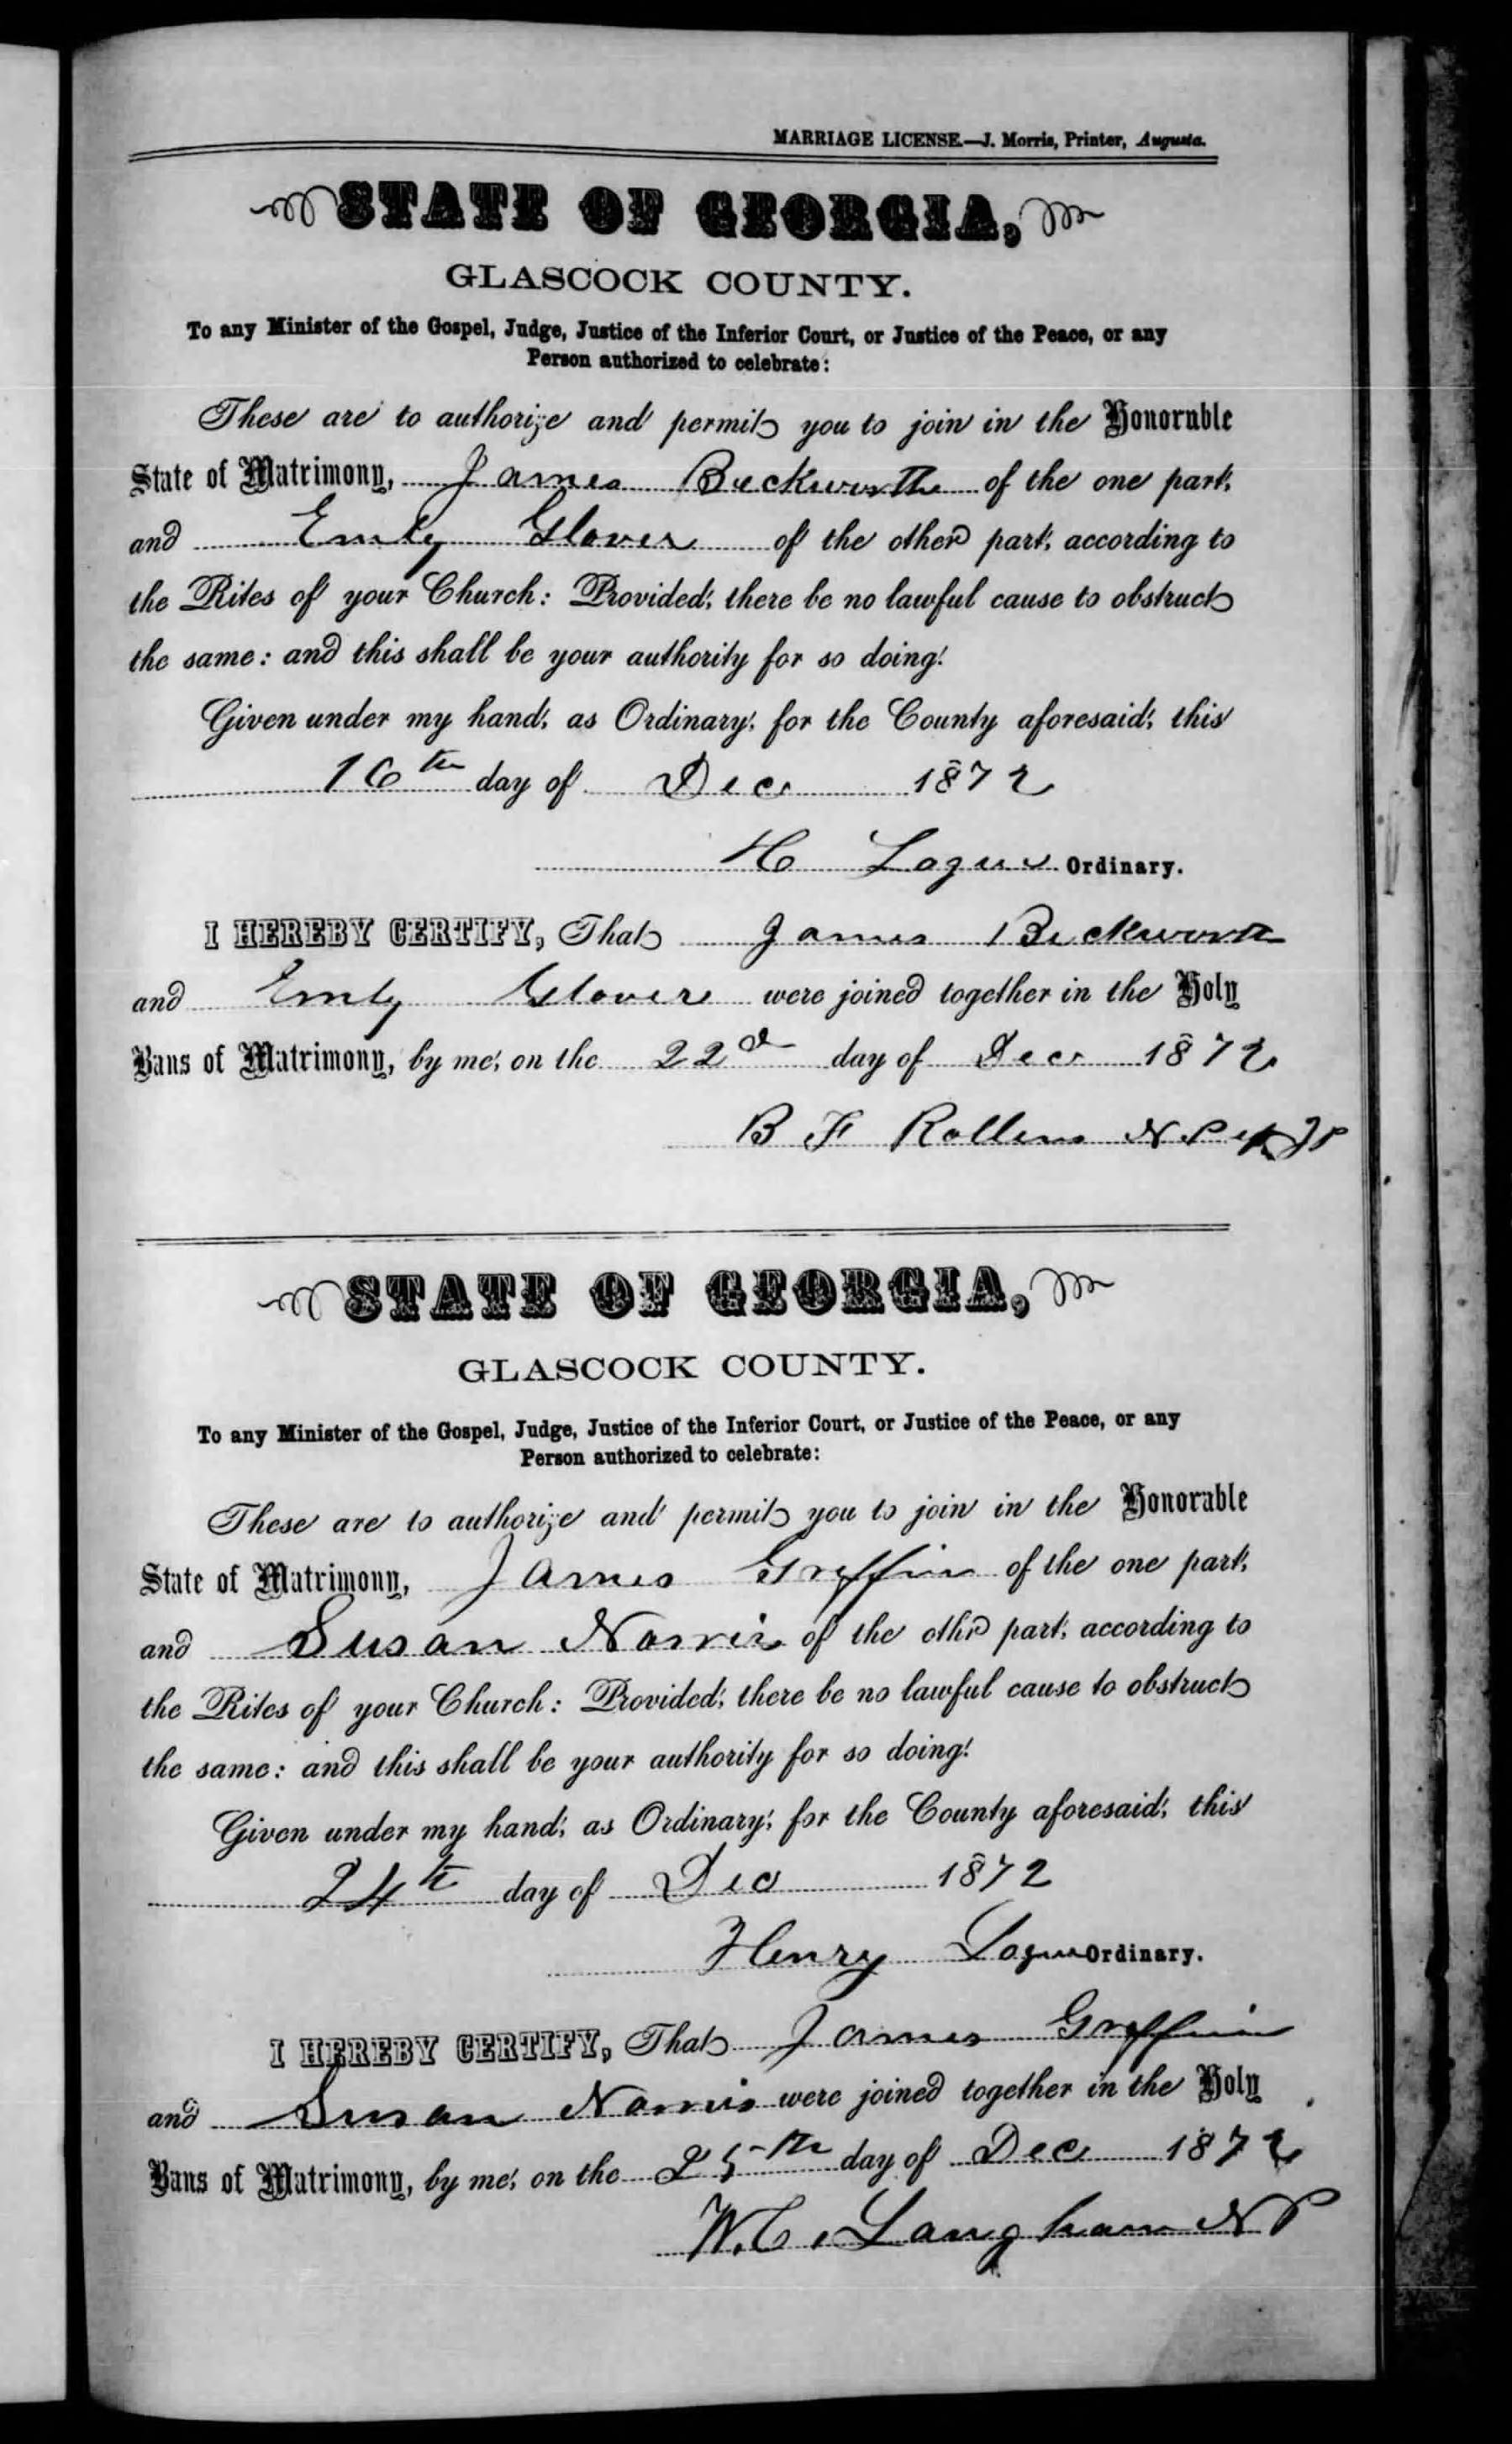 MARRIAGE LICENSE.—J. Morris, Printer, Augusta.
STATE OF GEORGIA,
GLASCOCK COUNTY.
To any Minister of the Gospel, Judge, Justice of the Inferior Court, or Justice of the Peace, or any
Person authorized to celebrate:
These are to authorize and permit you to join in the Honorable
State of Matrimony, James Beckworth of the one part,
and Emly Glover of the other part, according to
the Rites of your Church: Provided, there be no lawful cause to obstruct
the same: and this shall be your authority for so doing.
Given under my hand, as Ordinary, for the County aforesaid, this
16th day of Dec 1872
H Logue Ordinary.
I HEREBY CERTIFY, That James Beckworth
and Emly Glover were joined together in the Holy
Bans of Matrimony, by me, on the 22d day of Dec 1872
B F Rollins N P & JP
STATE OF GEORGIA,
GLASCOCK COUNTY.
To any Minister of the Gospel, Judge, Justice of the Inferior Court, or Justice of the Peace, or any
Person authorized to celebrate:
These are to authorize and permit you to join in the Honorable
State of Matrimony, James Griffin of the one part,
and Susan Norris of the othr part, according to
the Rites of your Church: Provided, there be no lawful cause to obstruct
the same: and this shall be your authority for so doing.
Given under my hand, as Ordinary, for the County aforesaid, this
24th day of Dec 1872
Henry Logue Ordinary.
I HEREBY CERTIFY, That James Griffin
and Susan Norris were joined together in the Holy
Bans of Matrimony, by me, on the 25th day of Dec 1872
W. C. Langham N P